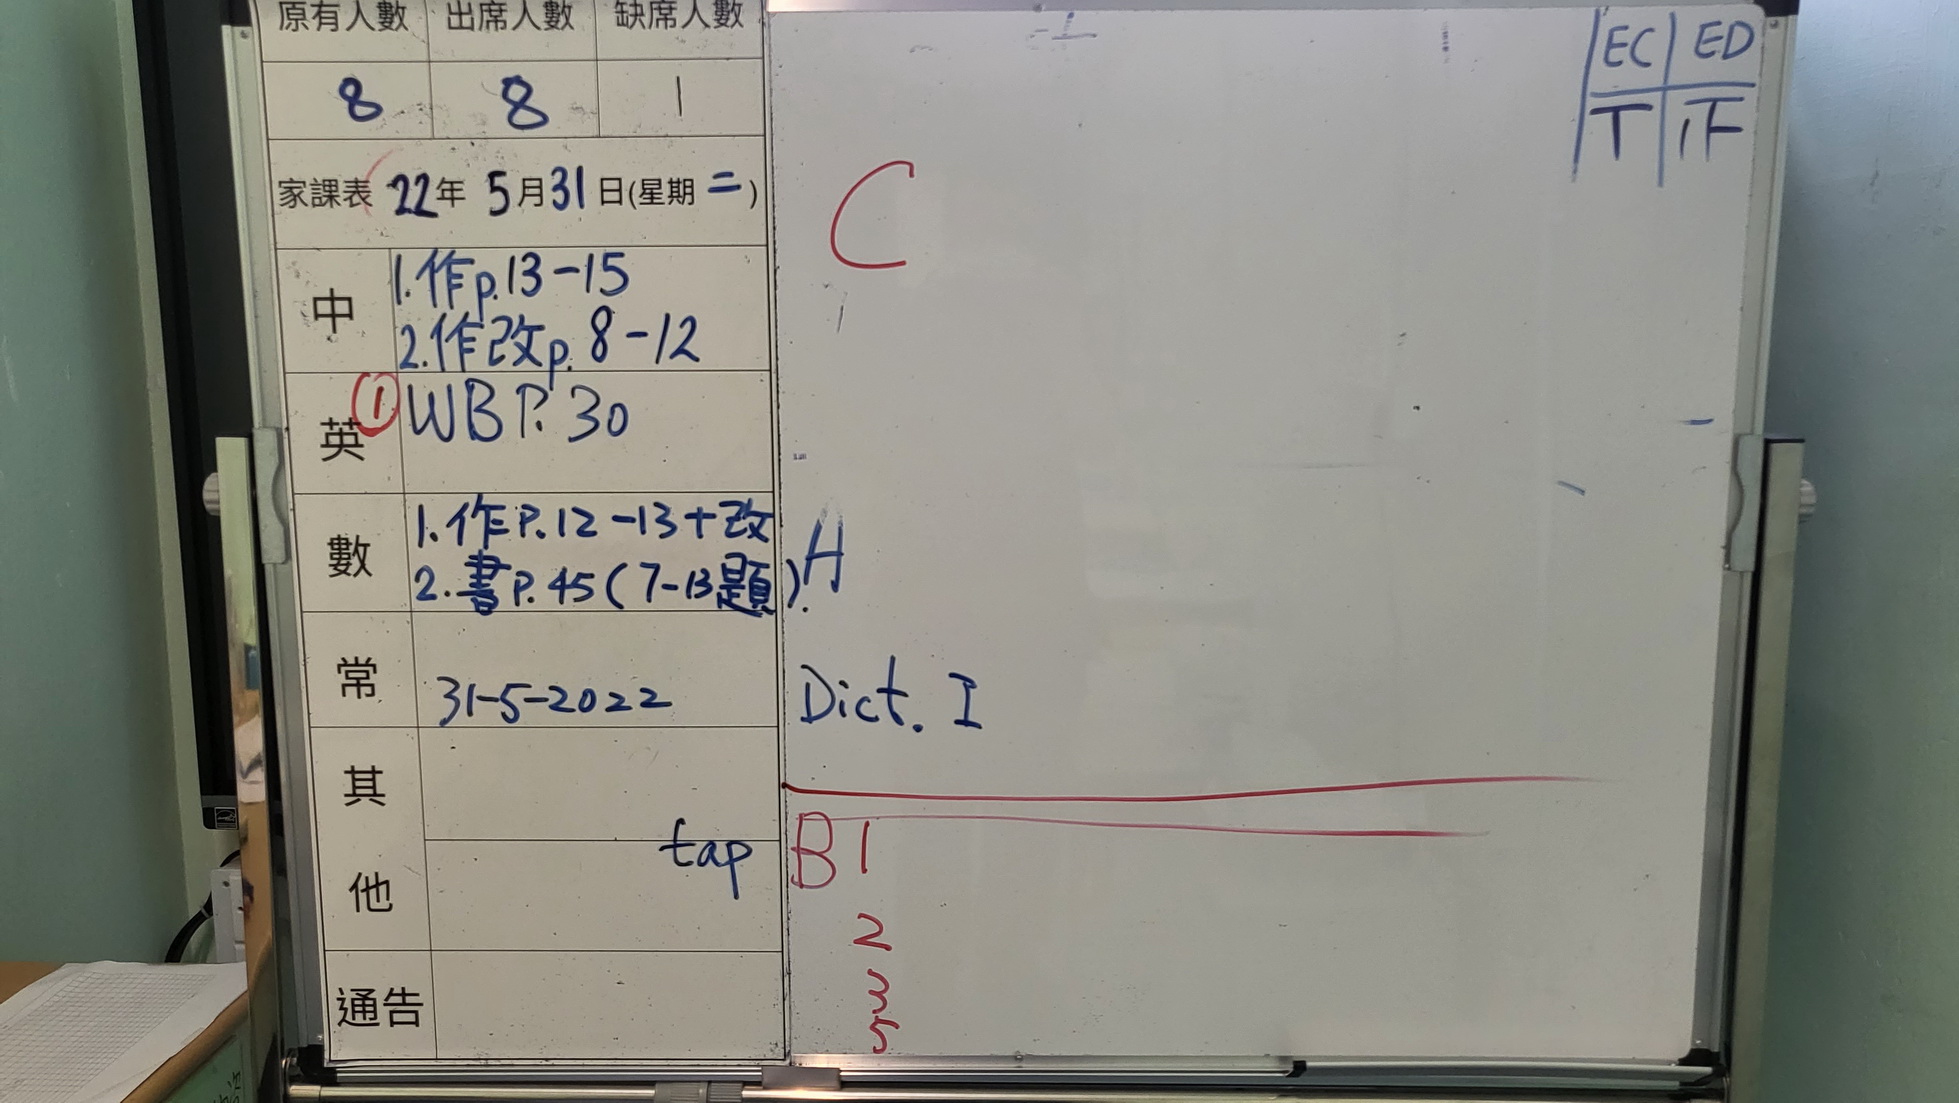 原有人數 出席人數 缺席人數
8 8 1
家課表 22年 5月31日(星期二)
中 1.作p.13-15
2.作改p.8-12
英 ① WB P.30
數 1.作P.12-13+改
2.書P.45(7-13題).
常 31-5-2022
其他
tap
通告
EC ED
T iF
C
1
A
Dict. I
B 1
2
3
5